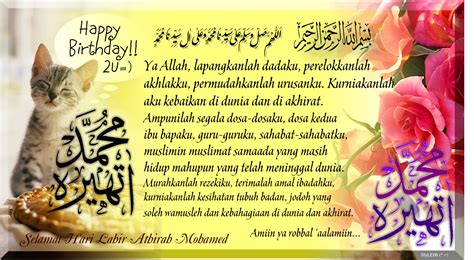 Happy
Birthday!!
2U=)
اللهم صل وسلم على سيدنا محمد وعلى آل سيدنا محمد
بسم الله الرحمن الرحيم
Ya Allah, lapangkanlah dadaku, perelokkanlah
akhlakku, permudahkanlah urusanku. Kurniakanlah
aku kebaikan di dunia dan di akhirat.
Ampunilah segala dosa-dosaku, dosa kedua
ibu bapaku, guru-guruku, sahabat-sahabatku,
muslimin muslimat samaada yang masih
hidup mahupun yang telah meninggal dunia.
Murahkanlah rezekiku, terimalah amal ibadahku,
kurniakanlah kesihatan tubuh badan, jodoh yang
soleh wamusleh dan kebahagiaan di dunia dan akhirat.
Amiin ya robbal 'aalamiin...
محمد
اتهيره
محمد
اتهيره
Selamat Hari Lahir Athirah Mohamed